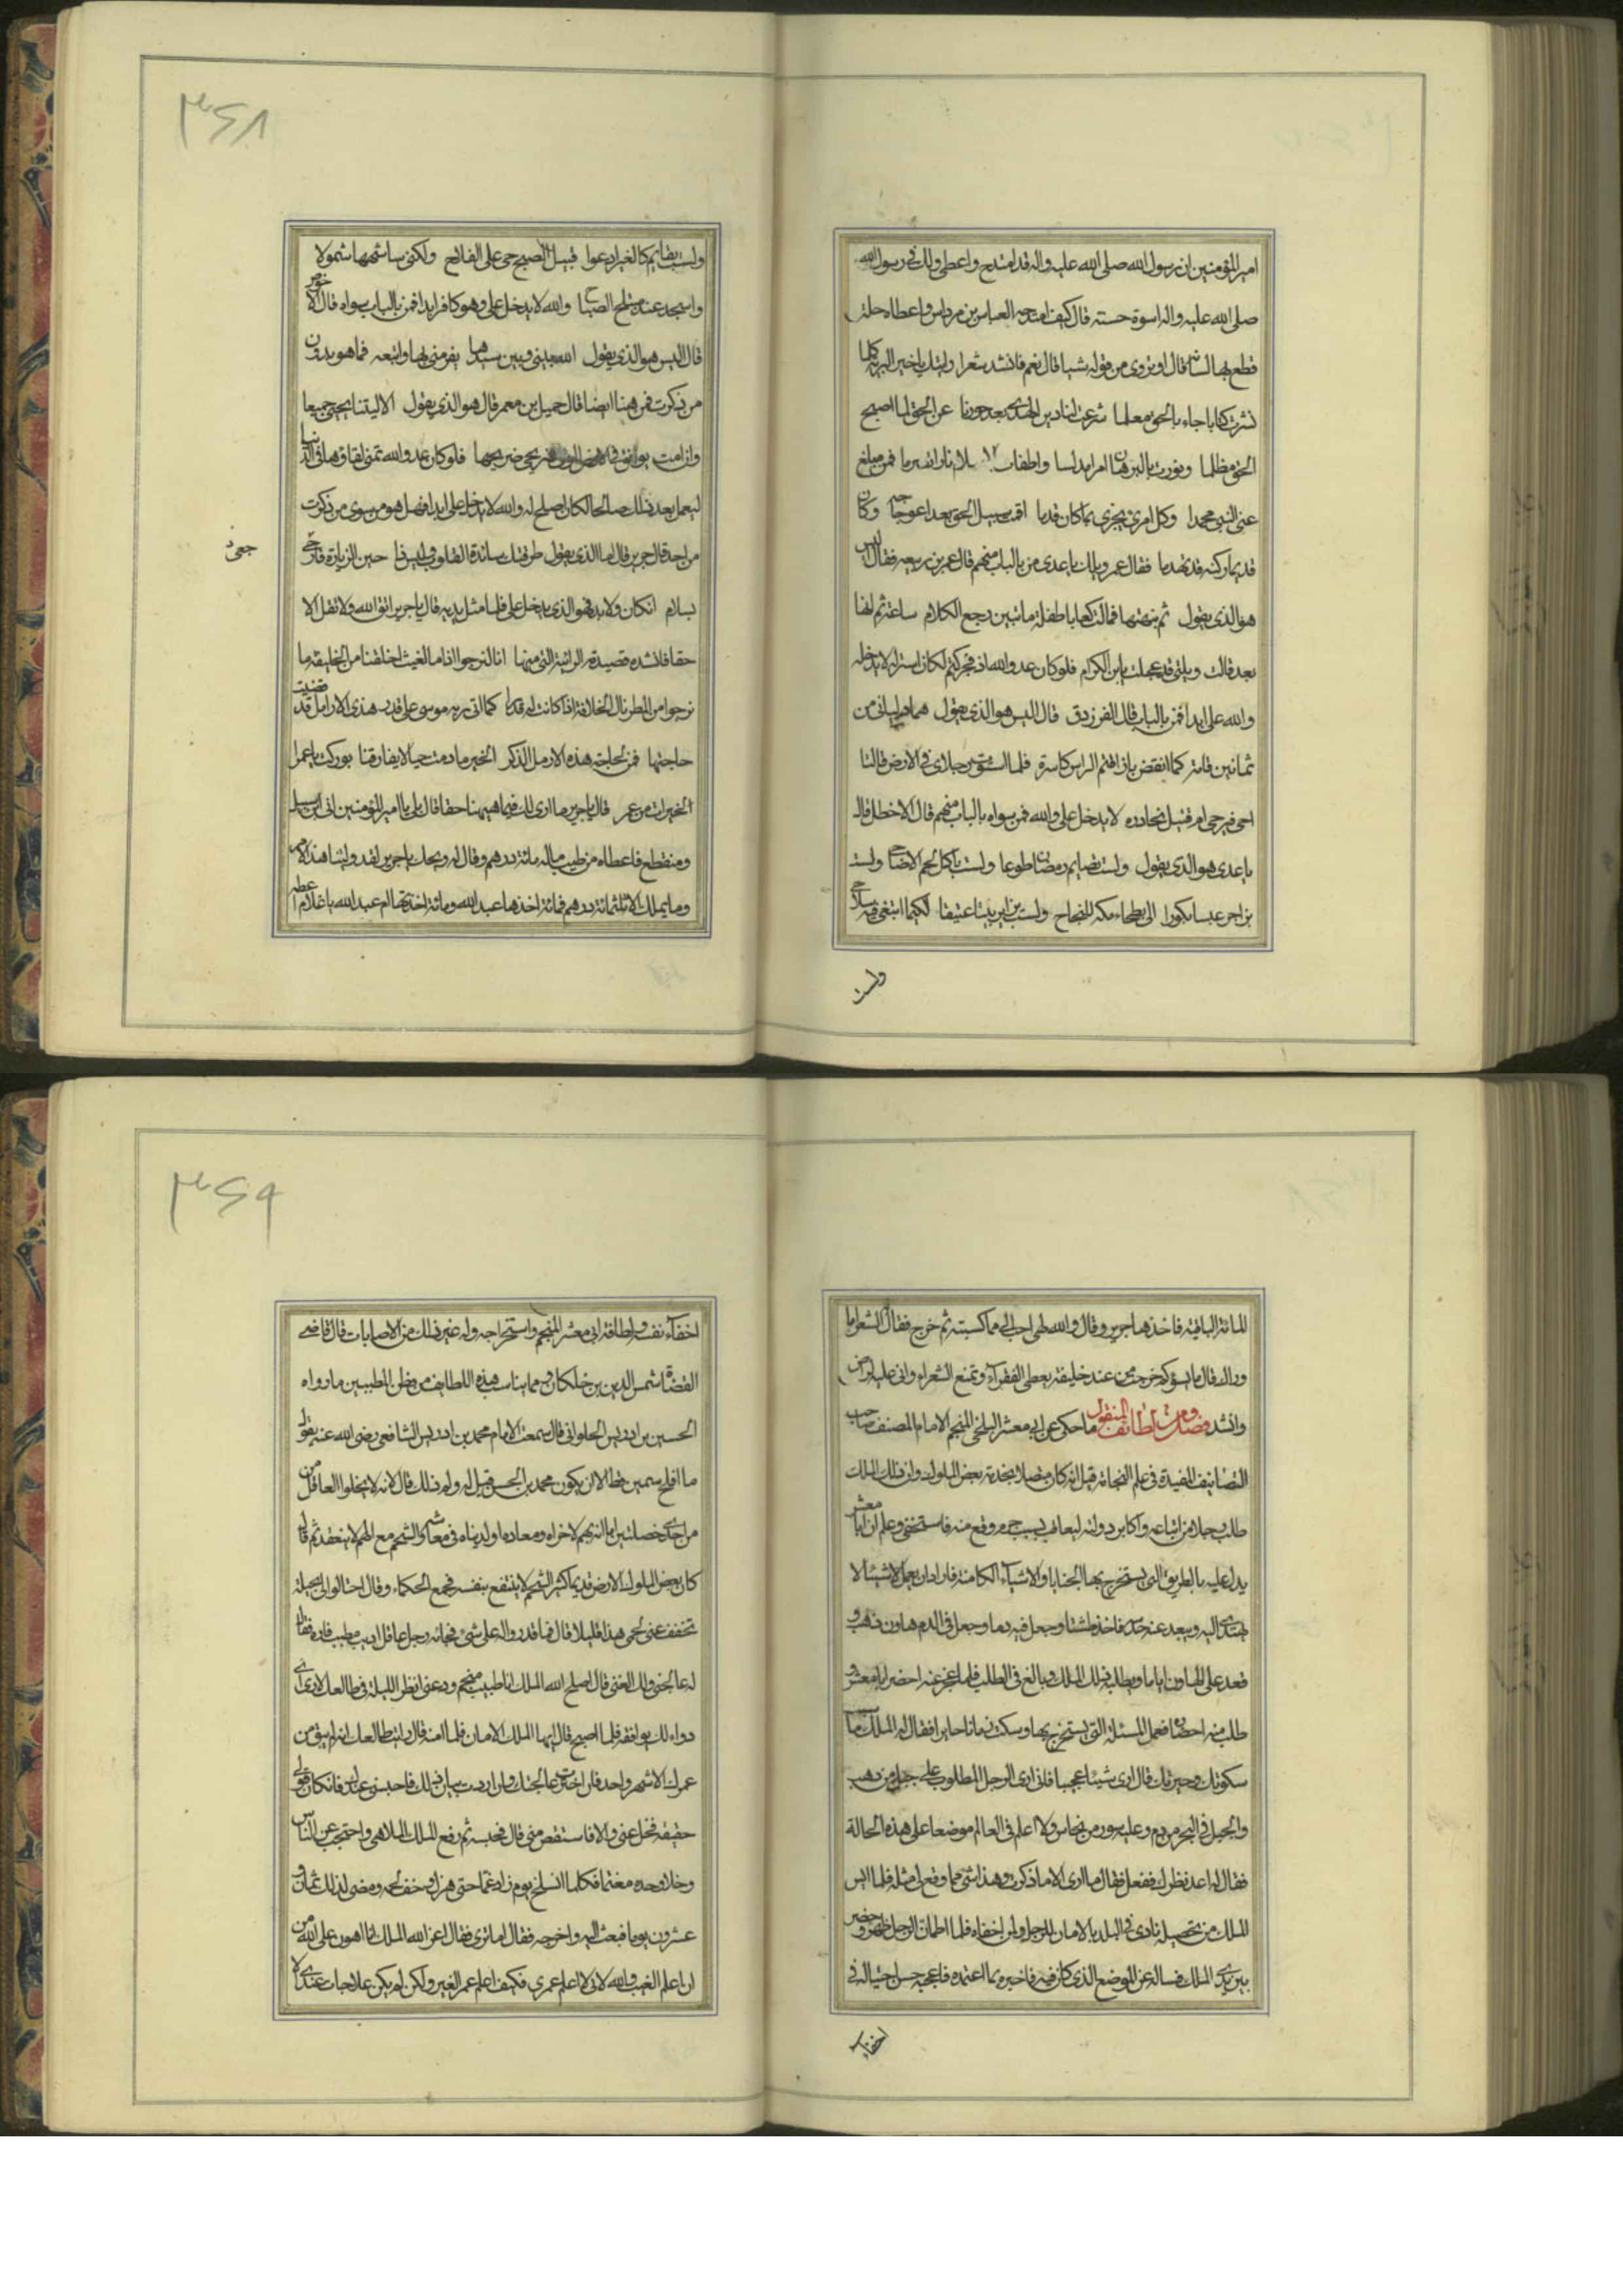 امير المؤمنين ان رسول الله صلى الله عليه واله قد امتدح واعطى ولك فى رسول الله
صلى الله عليه واله اسوة حسنه قال كيف امتدحه العباس بن مرداس واعطاه حلة
قطع بها لسانه قال او تروى من قوله شيئا قال نعم فانشد شعرا رايتك يا خير البرية كلها
نشرت كتابا جاء بالحق معلما شرعت لنا دين الهدى بعد جورنا عن الحق لما اصبح
الحق مظلما ونورت بالبرهان امرا مدلسا واطفات نارا تضرما فمن مبلغ
عنى النبى محمدا وكل امرئ يجزى بما كان قدما اقمت سبيل الحق بعد اعوجاجه وكان
قديما ركنه قد تهدما فقال عمر ويلك يا عدى من بالباب منهم قال عمر بن ربيعه فقال اليس
هو الذى يقول ثم نبهتها فمالت كعابا طفلة ما تبين رجع الكلام ساعة ثم انها
بعد قالت ويلتى قد عجلت يابن الكرام فلو كان عدو الله اذ فجر كتم لكان استر له لا يدخل
والله على ابدا فمن بالباب قال الفرزدق قال اليس هو الذى يقول هما دليانى من
ثمانين قامة كما انقض باز اقتم الراس كاسره فلما استوت رجلاى فى الارض قالتا
احى فيرجى ام قتيل نحادره لا يدخل على والله فمن سواه بالباب منهم قال الاخطل قال
يا عدى هو الذى يقول ولست بصايم رمضان طوعا ولست باكل لحم الاضاحى ولست
بزاجر عيسا بكورا الى بطحاء مكه للنجاح ولست بزاير بيتا عتيقا لمكة ابتغى فيه صلاحى
ولست
٣٦٨
ولست بقائم كالعير ادعوا قبيل الصبح حى على الفلاح ولكنى ساشربها شمولا
واسجد عند مبتلج الصباح والله لا يدخل على وهو كافر ابدا فمن بالباب سواه قال الاخوص
قال اليس هو الذى يقول الله بينى وبين سيدها يفر منى بها واتبعه فما هو بدون
من ذكرت فمن ههنا ايضا قال جميل بن معمر قال هو الذى يقول الا ليتنا نحيى جميعا
وان امت يوافق ضريحى ضريحها فلو كان عدو الله تمنى لقاؤها فى الدنيا
ليعمل بعد ذلك صالحا لكان اصلح له والله لا يدخل على ابدا فهل هو من سوى من ذكرت
من احد قال جرير قال اما الذى يقول طرقتك صائدة القلوب وليس ذا حين الزيارة فارجعى
بسلام ان كان ولا بد فهو الذى يدخل على فلما مثل بين يديه قال يا جرير اتق الله ولا تقل الا
حقا فانشده قصيدة الرائية التى منها انا لنرجوا اذا ما الغيث اخلفنا من الخليفة ما
نرجوا من المطر نال الخلافة اذا كانت له قدرا كما اتى ربه موسى على قدر هذى الارامل قد قضيت
حاجتها فمن لحاجة هذه الارمل الذكر الخير ما دمت حيا لا يفارقنا بوركت يا عمر
الخيرات من عمر قال يا جرير ما ارى لك فيما ههنا حقا قال بلى يا امير المؤمنين انى ابن سبيل
ومنقطع فاعطاه من طيب ماله مائة درهم وقال له ويحك يا جرير لقد ولينا هذا الامر
وما يملك الا ثلثمائة درهم فمائة اخذها عبد الله ومائة اخذتها ام عبد الله يا غلام اعطه
المائة الباقية فاخذها جرير وقال والله لهى احب الى مما كسبته ثم خرج فقال له الشعراء ما
وراك قال ما يسؤكم خرجت من عند خليفة يعطى الفقراء ويمنع الشعراء وانى عليه لراض
وانشد فصل ومن لطائف المنقول ما حكى عن ابى معشر البلخى المنجم الامام المصنف صاحب
التصانيف المفيدة فى علم النجامة قيل انه كان متصلا بخدمة بعض الملوك وان ذلك الملك
طلب رجلا من اتباعه واكابر دولته ليعاقبه بسبب جرم وقع منه فاستخفى وعلم ان ابا معشر
يدل عليه بالطريق التى يستخرج بها الخبايا والاشياء الكامنة فاراد ان يعمل شيئا لا
يهتدى اليه ويبعد عنه حدسه فاخذ طشتا وجعل فيه دما وجعل فى الدم هاون ذهب و
قعد على الهاون اياما ويطلب ذلك الملك وبالغ فى الطلب فلما عجز عنه احضر ابا معشر و
طلب منه احضاره فعمل المسئلة التى يستخرج بها وسكت زمانا حايرا فقال له الملك ما سبب
سكوتك وحيرتك قال ارى شيئا عجيبا فانى ارى الرجل المطلوب على جبل من ذهب
والجبل فى البحر من دم وعليه سور من نحاس ولا اعلم فى العالم موضعا على هذه الحالة
فقال له اعد نظرك ففعل فقال ما ارى الا ما ذكرت وهذا شئ ما وقع لى مثله فلما ايس
الملك من تحصيله نادى فى البلد بالامان للرجل ولمن اخفاه فلما اطمان الرجل ظهر وحضر
بين يدى الملك فساله عن الموضع الذى كان فيه فاخبره بما اعتمده فاعجبه حسن احتياله فى
اخفاء
٣٦٩
اخفاء نفسه ولطافة ابى معشر المنجم واستخراجه وله غير ذلك من الاصابات قال قاضى
القضاة شمس الدين بن خلكان ومما يناسب هذه اللطايف من فطن المطببين ما رواه
الحسين بن ادريس الحلوانى قال سمعت الامام محمد بن ادريس الشافعى رضى الله عنه يقول
ما افلح سمين قط الا ان يكون محمد بن الحسن قيل له ولم ذلك قال لانه لا يخلوا العاقل من
من احدى خصلتين اما انه يهم لاخراه ومعاده او لدنياه فى معاشه والشحم مع الهم لا ينعقد ثم قال
كان بعض الملوك الارض قديما كثير الشحم لا ينتفع بنفسه فجمع الحكماء وقال احتالوا لى بحيلة
تخفف عنى لحمى هذا قليلا قال فما قدروا له على شئ فجائه رجل عاقل اديب مطبب فاره فقال
له عالجنى ولك الغنى قال اصلح الله الملك انا طبيب منجم ودعنى انظر الليلة فى طالعك لارى اى
دواء لك يوافقه فلما اصبح قال ايها الملك الامان فلما امنه قال رايت طالعك انه لم يبق من
عمرك الا شهر واحد فان اخترت عالجتك وان اردت بيان ذلك فاحبسنى عندك فان كان لقولى
حقيقه فخل عنى والا فاستقص منى قال فحبسه ثم رفع الملك الملاهى واحتجب عن الناس
وخلا وحده مغتما فكلما انسلخ يوم زاد غما حتى هزل وخف لحمه ومضى لذلك ثمان و
عشرون يوما فبعث اليه واخرجه فقال ما ترى فقال اعز الله الملك انا اهون على الله من
ان اعلم الغيب والله لانى لا اعلم عمرى فكيف اعلم عمر الغير ولكن لم يكن علاجك عندى الا